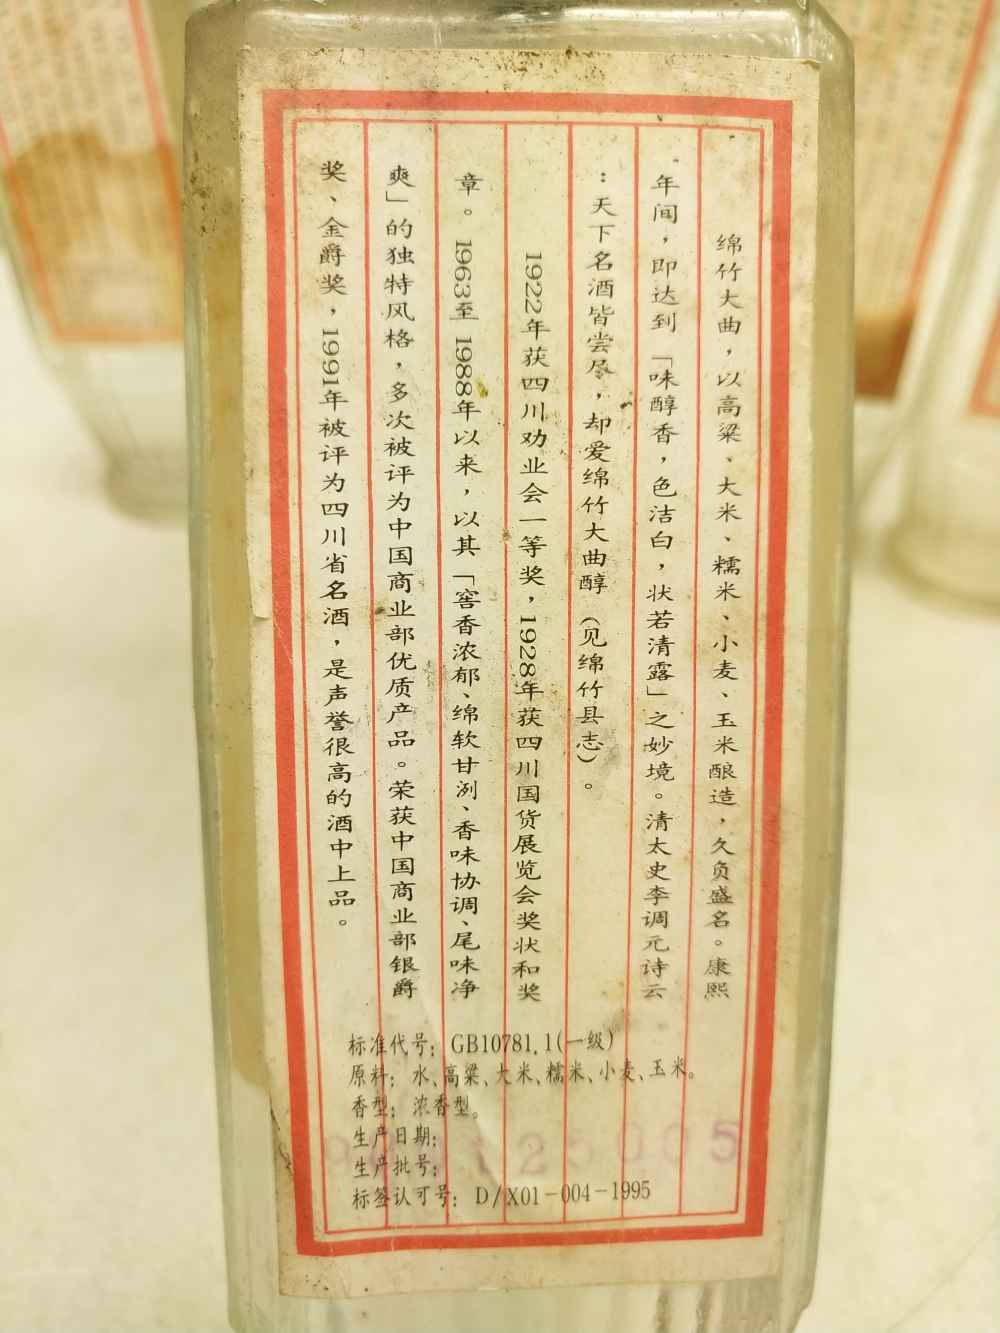 绵竹大曲，以高粱、大米、糯米、小麦、玉米酿造，久负盛名。康熙
年间，即达到「味醇香，色洁白，状若清露」之妙境。清太史李调元诗云
：天下名酒皆尝尽，却爱绵竹大曲醇（见绵竹县志）。
1922年获四川劝业会一等奖，1928年获四川国货展览会奖状和奖
章。1963至1988年以来，以其「窖香浓郁、绵软甘洌、香味协调、尾味净
爽」的独特风格，多次被评为中国商业部优质产品。荣获中国商业部银爵
奖、金爵奖，1991年被评为四川省名酒，是声誉很高的酒中上品。
标准代号：GB10781.1(一级)
原料：水、高粱、大米、糯米、小麦、玉米。
香型：浓香型。
生产日期：
生产批号：
标签认可号：D/X01-004-1995